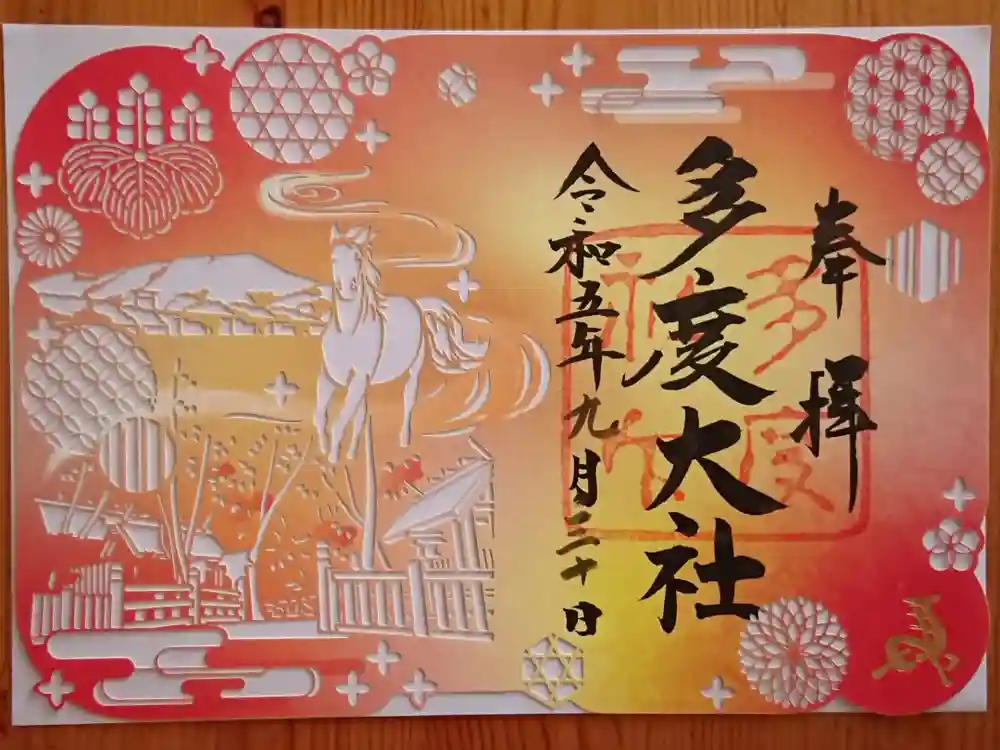 奉拝
多度大社
令和五年九月三十日
多度